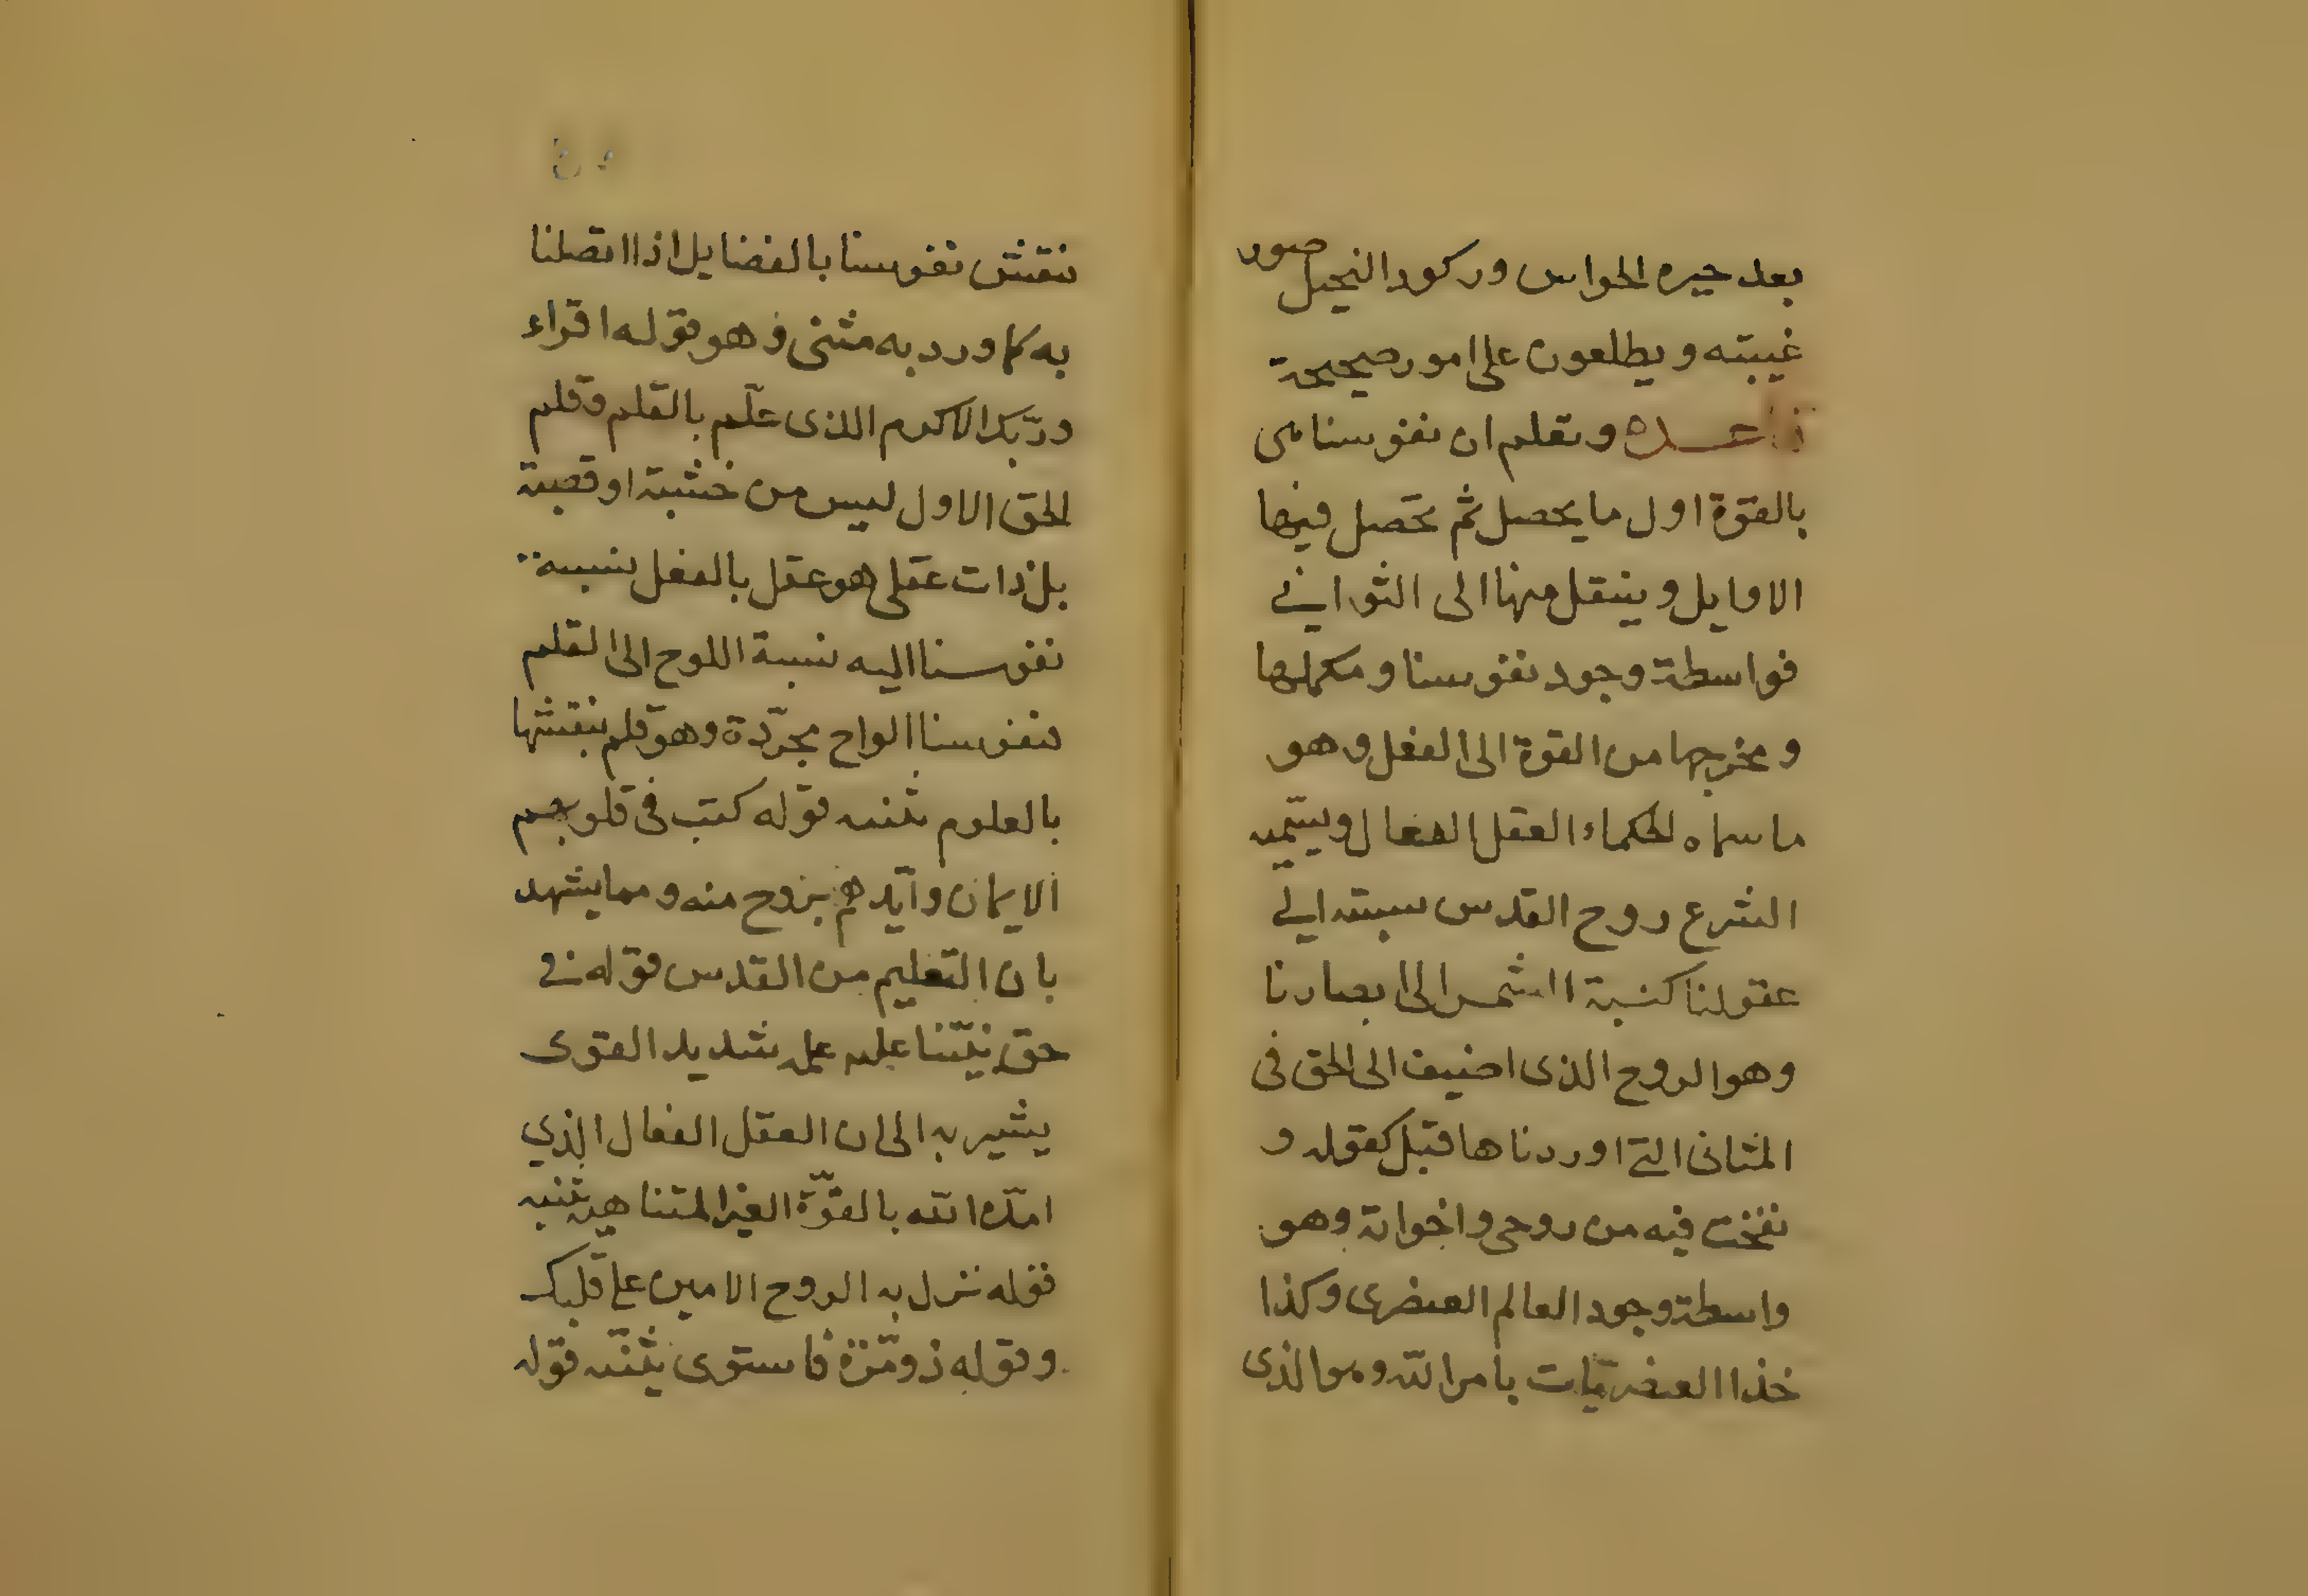 بعد حيره الحواس وركود التخيل صور
غيبته ويطلعون على امور صحيحة
وتعلم ان نفوسنا هى
بالقوة اول ما يحصل ثم تحصل فيها
الاوايل وينتقل منها الى الثوانى
فواسطة وجود نفوسنا ومكملها
ومخرجها من القوة الى الفعل وهو
ما سماه الحكماء العقل الفعال ويسميه
الشرع روح القدس نسبته الى
عقولنا كنسبة الشمس الى ابصارنا
وهو الروح الذى اضيف الى الحق فى
المثانى التى اوردناها قبل كقوله و
نفخت فيه من روحى واخواته وهو
واسطة وجود العالم العنصرى وكذا
خذا العنصريات بامر الله وهو الذى
ننقش نفوسنا بالفضايل اذا اتصلنا
به كما ورد به مثنى وهو قوله اقراء
وربك الاكرم الذى علم بالقلم وقلم
الحق الاول ليس من خشبة او قصبة
بل ذات عقلى هو عقل بالفعل نسبة
نفوسنا اليه نسبة اللوح الى القلم
فنفوسنا الواح مجردة وهو قلم ينقشها
بالعلوم تثنيه قوله كتب فى قلوبهم
الايمان وايدهم بروح منه ومما يشهد
بان التعليم من القدس قوله فى
حق نبينا عليه علمه شديد القوى
يشير به الى ان العقل الفعال الذي
امده الله بالقوة الغير المتناهية تثنيه
قوله نزل به الروح الامين على قلبك
وقوله ذو مرة فاستوى تثنيه قوله